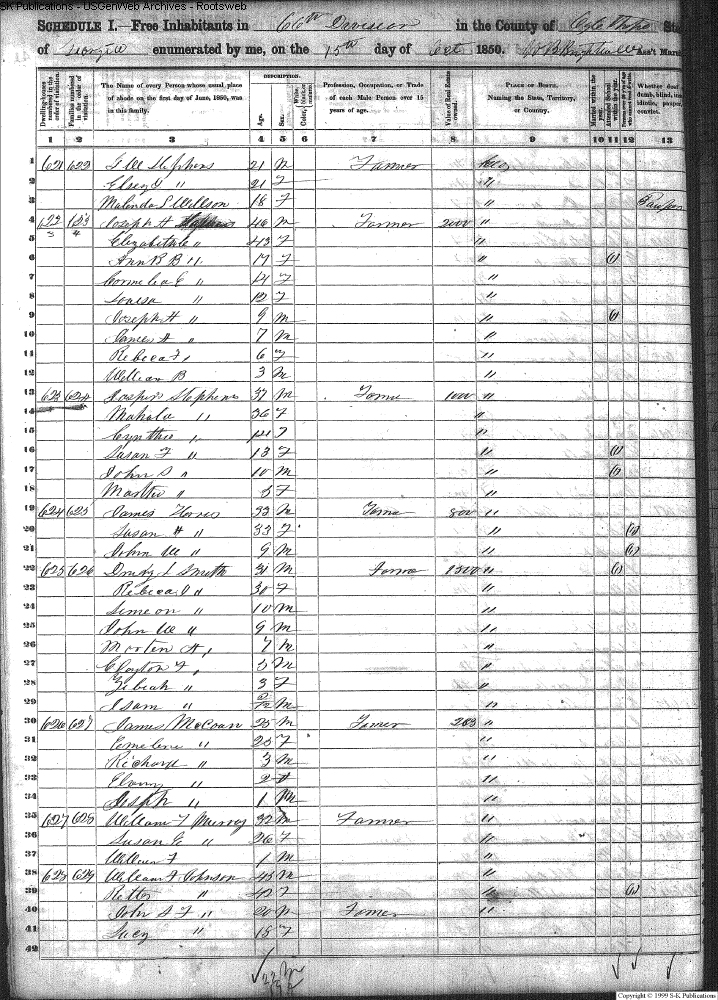 SK Publications - USGenWeb Archives - Rootsweb
SCHEDULE I.—Free Inhabitants in 66th Division in the County of Ogle Thorpe State
of Georgia enumerated by me, on the 15th day of Oct 1850. Ass't Marsh
Dwelling-houses numbered in the order of visitation.
Families numbered in the order of visitation.
The Name of every Person whose usual place of abode on the first day of June, 1850, was in this family.
DESCRIPTION.
Age.
Sex.
White, Color, black, or mulatto.
Profession, Occupation, or Trade of each Male Person over 15 years of age.
Value of Real Estate owned.
PLACE OF BIRTH. Naming the State, Territory, or Country.
Married within the year.
Attended School within the year.
Whether deaf dumb, blind, ins idiotic, pauper convict.
1 2 3 4 5 6 7 8 9 10 11 12 13
1 621 622 Stephens 21 M Farmer Geo
2 " 21 F "
3 Malinda S Willson 18 F " Pauper
4 Joseph H Stephens 46 M Farmer 2000 "
5 Elizabeth C " 43 F "
6 Ann B B " 17 F " (1)
7 Cornelia E " 14 F "
8 Louisa " 12 F "
9 Joseph H " 9 M " (1)
10 James A " 7 M "
11 Rebeca F " 6 F "
12 William B 3 M "
13 623 624 Stephens 37 M Farmer 1000 "
14 Mahala " 36 F "
15 Cynthia " 14 F "
16 Susan F " 13 F " (1)
17 John S " 10 M " (1)
18 Martha " 5 F "
19 624 625 James 33 M Farmer 800 "
20 Susan H " 33 F " (1)
21 John W " 9 M " (1)
22 625 626 Drury S Smith 31 M Farmer 1500 " (1)
23 Rebeca " 30 F "
24 Simeon " 10 M "
25 John W " 9 M "
26 Marten A " 7 M "
27 Clayton F " 5 M "
28 " 3 F "
29 Isam " 2/12 M "
30 626 627 James McCoan 25 M Farmer 203 "
31 Emeline " 25 F "
32 Richard " 3 M "
33 " 2 "
34 Joseph " 1 M "
35 627 628 William T Murray 32 M Farmer "
36 Susan E " 26 F "
37 William F 1 M "
38 628 629 William F Johnson 45 M "
39 " 42 F " (1)
40 John S F " 20 M Farmer "
41 Lucy " 15 F "
42
Copyright © 1999 S-K Publications